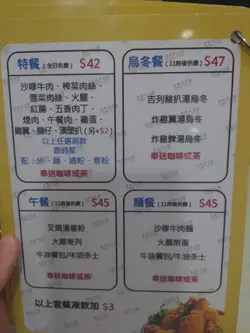 特餐 (全日供應) $42
沙嗲牛肉、榨菜肉絲、
雪菜肉絲、火腿、
紅腸、五香肉丁、
燒肉、午餐肉、雞蛋、
雞翼、腸仔、漢堡扒(另+$2)
以上任選兩款
跟時菜
配 粉、麵、通粉、意粉
奉送咖啡或茶
烏冬餐 (11時後供應) $47
吉列豬扒湯烏冬
炸雞翼湯烏冬
炸雞脾湯烏冬
奉送咖啡或茶
午餐 (11時後供應) $45
叉燒湯意粉
火腿奄列
牛油餐包/牛油多士
奉送咖啡或茶
麵餐 (11時後供應) $45
沙嗲牛肉麵
火腿煎蛋
牛油餐包/牛油多士
奉送咖啡或茶
以上套餐凍飲加 $3